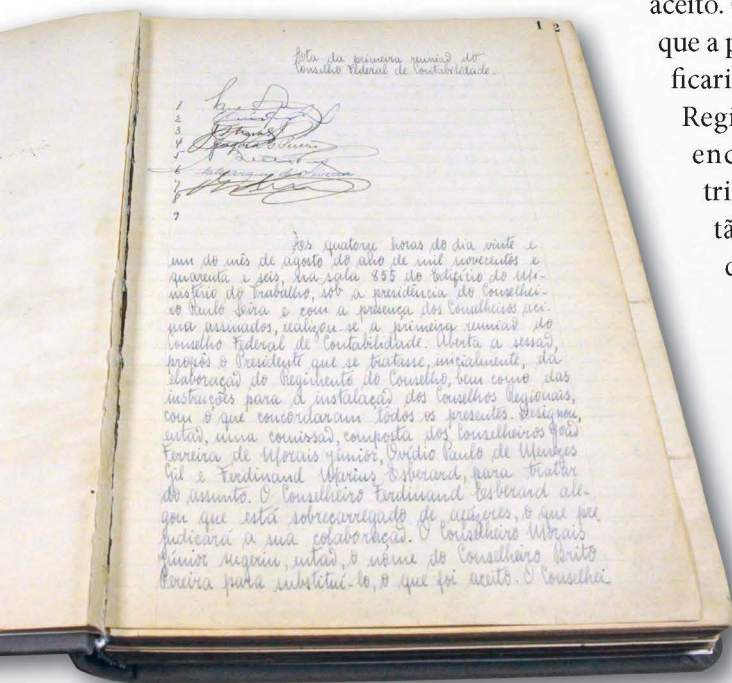 1 2
Ata da primeira reunião do
Conselho Federal de Contabilidade.
1
2
3
4
5
6
7
8
9
Às quatorze horas do dia vinte e
um do mês de agosto do ano de mil novecentos e
quarenta e seis, na sala 855 do Edifício do Mi-
nistério do Trabalho, sob a presidência do Conselhei-
ro Paulo Lira e com a presença dos Conselheiros aci-
ma assinados, realizou-se a primeira reunião do
Conselho Federal de Contabilidade. Aberta a sessão,
propôs o Presidente que se tratasse, inicialmente, da
elaboração do Regimento do Conselho, bem como das
instruções para a instalação dos Conselhos Regionais,
com o que concordaram todos os presentes. Designou,
então, uma comissão, composta dos Conselheiros José
Ferreira de Morais Júnior, Ovídio Paulo de Menezes
Gil e Ferdinand Marius Esberard, para tratar
do assunto. O Conselheiro Ferdinand Esberard ale-
gou que está sobrecarregado de afazeres, o que pre
judicará a sua colaboração. O Conselheiro Morais
Júnior sugeriu, então, o nome do Conselheiro Brito
Pereira para substituí-lo, o que foi aceito. O Conselhei
aceito.
que a p
ficari
Regi
enc
tri
tã